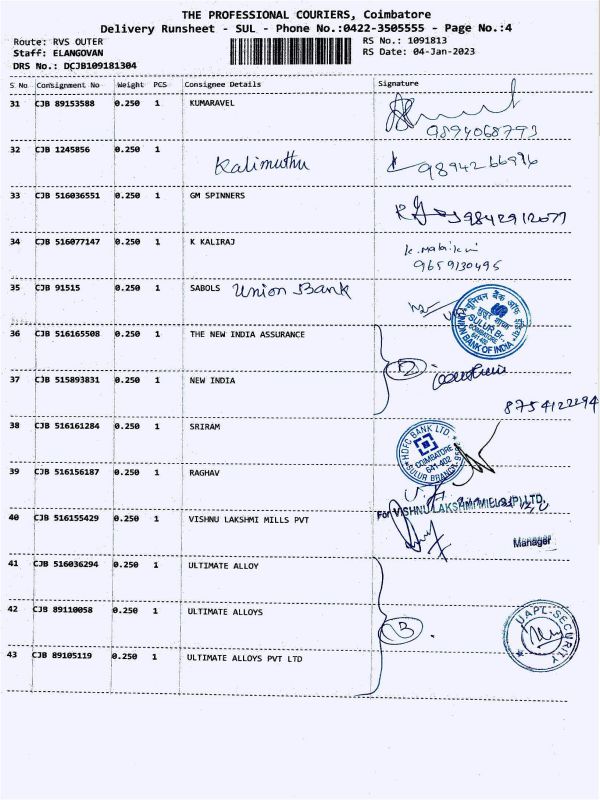 THE PROFESSIONAL COURIERS, Coimbatore
Delivery Runsheet - SUL - Phone No.:0422-3505555 - Page No.:4
Route: RVS OUTER RS No.: 1091813
Staff: ELANGOVAN RS Date: 04-Jan-2023
DRS No.: DCJB109181304
S No Consignment No Weight PCS Consignee Details Signature
31 CJB 89153588 0.250 1 KUMARAVEL
9894068793
32 CJB 1245856 0.250 1 Kalimuthu 9894266996
33 CJB 516036551 0.250 1 GM SPINNERS 9842912077
34 CJB 516077147 0.250 1 K KALIRAJ
9659130495
35 CJB 91515 0.250 1 SABOLS Union Bank
यूनियन बैंक ऑफ इंडिया
SULUR Br.
COIMBATORE
641 402
UNION BANK OF INDIA
36 CJB 516165508 0.250 1 THE NEW INDIA ASSURANCE
37 CJB 515893831 0.250 1 NEW INDIA
8754122294
38 CJB 516161284 0.250 1 SRIRAM
HDFC BANK LTD.
COIMBATORE
641-402
SULUR BRANCH
39 CJB 516156187 0.250 1 RAGHAV
40 CJB 516155429 0.250 1 VISHNU LAKSHMI MILLS PVT
For VISHNU LAKSHMI MILLS (P) LTD.
Manager
41 CJB 516036294 0.250 1 ULTIMATE ALLOY
42 CJB 89110058 0.250 1 ULTIMATE ALLOYS
43 CJB 89105119 0.250 1 ULTIMATE ALLOYS PVT LTD
UAPL-SECURITY